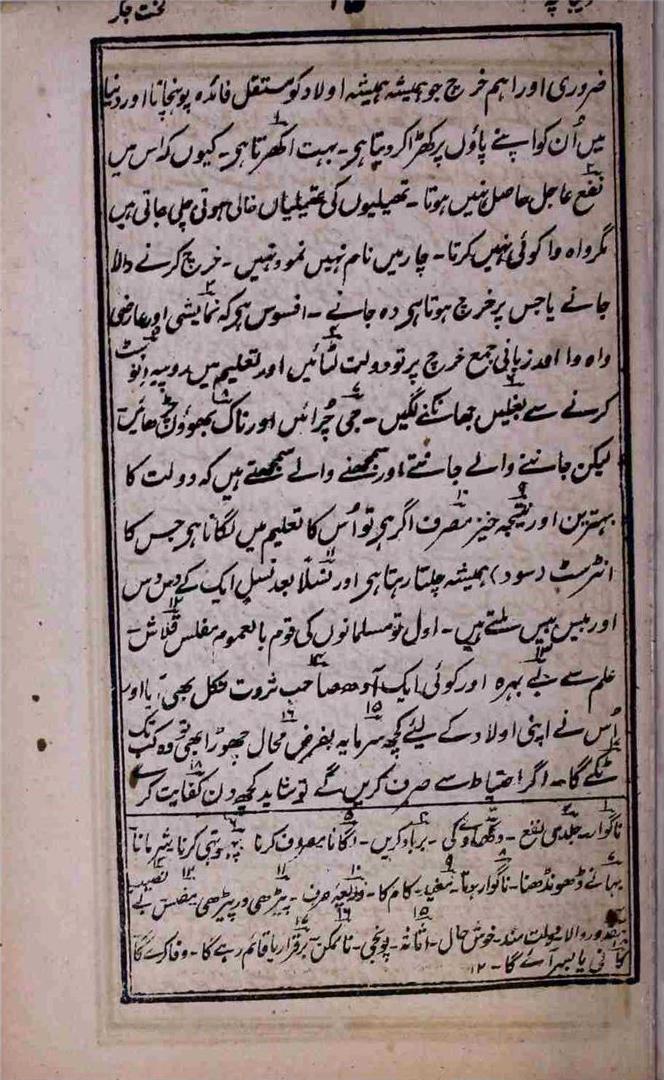 لخت جگر
ضروری اور اہم خرچ جو ہمیشہ ہمیشہ اولاد کو مستقل فائدہ پونہچاتا اور دنیا
میں اُن کو اپنے پاؤں پر کھڑا کر دیتا ہی۔ بہت اکھرتا ہی۔ کیوں کہ اس میں
نفع عاجل حاصل نہیں ہوتا۔ تھیلیوں کی تھیلیاں خالی ہوتی چلی جاتی ہیں
مگر واہ وا کوئی نہیں کرتا۔ چار میں نام نہیں نمود نہیں۔ خرچ کرنے والا
جانے یا جس پر خرچ ہوتا ہی وہ جانے۔ افسوس ہی کہ نمایشی اور عارضی
واہ وا اور زبانی جمع خرچ پر تو دولت لٹائیں اور تعلیم میں روپیہ انوسٹ
کرنے سے بغلیں جھانکنے لگیں۔ جی چُرائیں اور ناک بھوؤں چڑھائیں
لیکن جاننے والے جانتے اور سمجھنے والے سمجھتے ہیں کہ دولت کا
بہترین اور نتیجہ خیز مصرف اگر ہی تو اُس کا تعلیم میں لگانا ہی جس کا
انٹرسٹ (سود) ہمیشہ چلتا رہتا ہی اور نسلاً بعد نسلٍ ایک کے دس دس
اور بیس بیس ملتے ہیں۔ اول تو مسلمانوں کی قوم بالعموم مفلس قلاش۔
علم سے بے بہرہ اور کوئی ایک آدھ صاحب ثروت نکل بھی آیا اور
اُس نے اپنی اولاد کے لیئے کچھ سرمایہ بفرض محال چھوڑا بھی تو وہ کب تک
ٹکے گا۔ اگر احتیاط سے صرف کریں گے تو شاید کچھ دن کفایت کرے
ناگوار۔ جلدی نفع۔ دکھاوے کی۔ برباد کریں۔ لگانا مصروف کرنا۔ پہلو تہی کرنا شرمانا
بہانے ڈھونڈھنا۔ ناگوار ہونا۔ مفید۔ کام کا۔ ذریعہ صرف۔ پیڑھی در پیڑھی مفلس بے نصیب
مقدور والا دولت مند۔ خوش حال۔ اثاثہ۔ پونجی۔ ناممکن۔ برقرار یا قائم رہے گا۔ وفا کرے گا
کافی یا بسر آئے گا۔ ۱۲